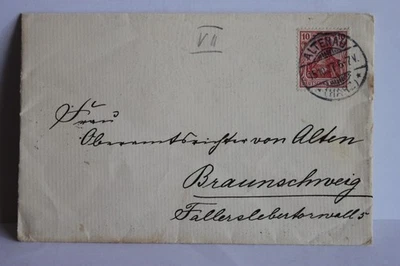 VII
10
ALTENAU
(HARZ)
Frau
Oberamtsrichter von Alten
Braunschweig
Fallerslebertorwall 5